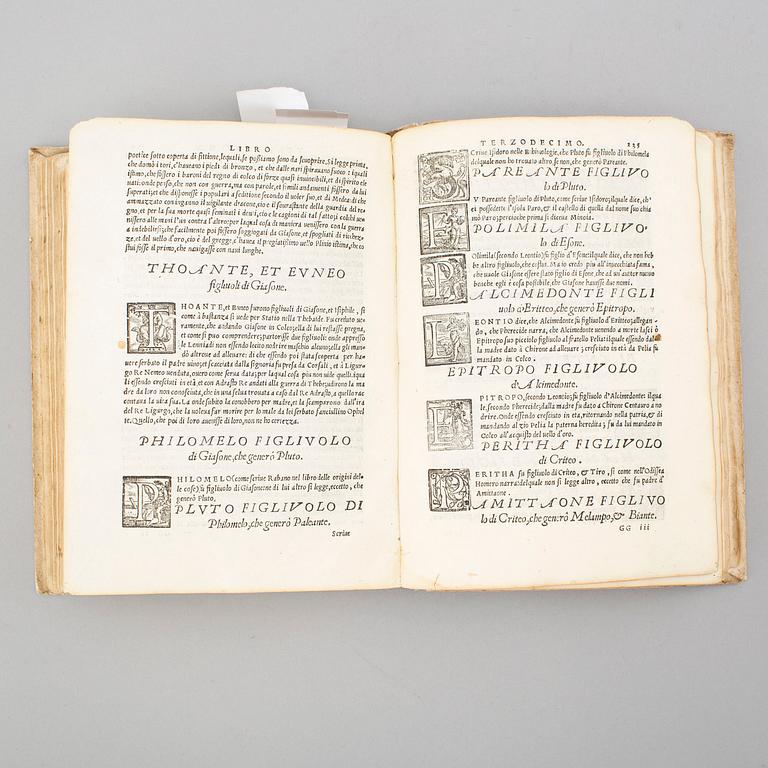 LIBRO
poetice sotto coperta di fittione, lequali, se possiamo sono da scuoprire. Si legge prima,
che domò i tori, c'haueano i piedi di bronzo, et che dalle nari spirauano fuoco: i quali
stimo, che fissero i baroni del regno di colco di forze quasi inuincibili, et di spirito ele
uati: onde persio, che non con guerra, ma con parole, et simili andamenti fissero da lui
superati; et che disponesse i populari a seditione secondo il uoler suo, et di Medea: di che
ammazzato con inganno il uigilante dracone, cio è il sourastante della guardia del re-
gno, et per la sua morte quasi seminati i denti, cio è le cagioni di tal fatto; i colchi uen-
nero alle mani l'un contra l'altro: per laqual cosa di maniera uensero con la guerra
a indebilirsi; che facilmente poi fissero soggiogati da Giasone, et spogliati di ricchez-
ze, et del uello d'oro, cio è del gregge, c'hauea il pregiatissimo uello Plinio istima, che co
stui fisse il primo, che nauigasse con naui lunghe.
THOANTE, ET EVNEO
figliuoli di Giasone.
THOANTE, et Euneo furono figliuoli di Giasone, et Isiphile, si
come à bastanza si uede per Statio nella Thebaide. Fu creduto ue-
ramente, che andando Giasone in Colco; ella di lui restasse pregna,
et come si può comprendere; partorisse due figliuoli: onde appresso
le Lenniadi non essendo lecito nodrire maschio alcuno; ella gli man-
dò altroue ad alleuare: il che essendo poi stata scoperta per ha-
uere serbato il padre uiuo; et scacciata dalla signoria fu presa da Corsali, et à Ligur-
go Re Nemeo uenduta, ouero come serua data; per laqual cosa piu non uide quelli. iqua
li essendo cresciuti in età, et con Adrasto Re andati alla guerra di Thebe; udirono la ma
dre da loro non conosciuta, che in una selua trouata à caso dal Re Adrasto, loro rac-
contaua la uita sua. La onde subito la conobbero per madre, et la scamparono dall'ira
del Re Ligurgo, che la uolea far morire per lo male da lei serbato fanciullino Ophel
te. Quello, che poi di loro auenisse di loro, non ne ho certezza.
PHILOMELO FIGLIVOLO
di Giasone, che generò Pluto.
PHILOMELO (come scriue Rabano nel libro delle origini del-
le cose) fu figliuolo di Giasone: ne di lui altro si legge, eccetto, che
generò Pluto.
PLVTO FIGLIVOLO DI
Philomelo, che generò Paleante.
Scriue
TERZODECIMO. 235
SCriue Isidoro nelle Ethimologie, che Pluto fu figliuolo di Philomela
del quale non ho trouato altro, se non, che generò Pareante.
PAREANTE FIGLIVO
lo di Pluto.
FV Pareante figliuolo di Pluto, come scriue Isidoro; ilquale dice, ch'e
i possedette l'isola Paro, & il castello di quella dal nome suo chia
mò Paro; percioche prima si diceua Minoia.
POLIMILA FIGLIVO-
lo di Esone.
POlimila (secondo Leontio) fu figlio d'Esone: ilquale dice, che non
hebbe altro figliuolo, che costui. Ma io credo piu all'inuecchiata fama,
che uuole Giasone essere stato figlio di Esone, che ad un'autor nuouo
benche egli è cosa possibile, che Giasone hauesse due nomi.
ALCIMEDONTE FIGLI
uolo d'Eritteo, che generò Epitropo.
LEONTIO dice, che Alcimedonte fu figliuolo d'Eritteo; allegan-
do, che Pherecide narra, che Alcimedonte uenendo a morte lasciò
Epitropo suo picciolo figliuolo al fratello Pelia: ilquale essendo dal-
la madre dato à Chirone ad alleuare; cresciuto in età fu da Pelia fu
mandato in Colco.
EPITROPO FIGLIVOLO
d'Alcimedonte.
EPITROPO, secondo Leontio; fu figliuolo d'Alcimedonte: ilqua
le, secondo Pherecide; dalla madre fu dato à Chirone Centauro a no-
drire. Onde essendo cresciuto in età, ritornando nella patria, & di-
mandando al zio Pelia la paterna heredità; fu da lui mandato in
Colco all'acquisto del uello d'oro.
PERITHA FIGLIVOLO
di Criteo.
PERITHA fu figliuolo di Criteo, & Tiro, si come nell'Odissea
Homero narra: del quale non si legge altro, eccetto che fu padre d'
Amittaone.
AMITTAONE FIGLIVO
lo di Criteo, che generò Melampo, & Biante.
GG iii